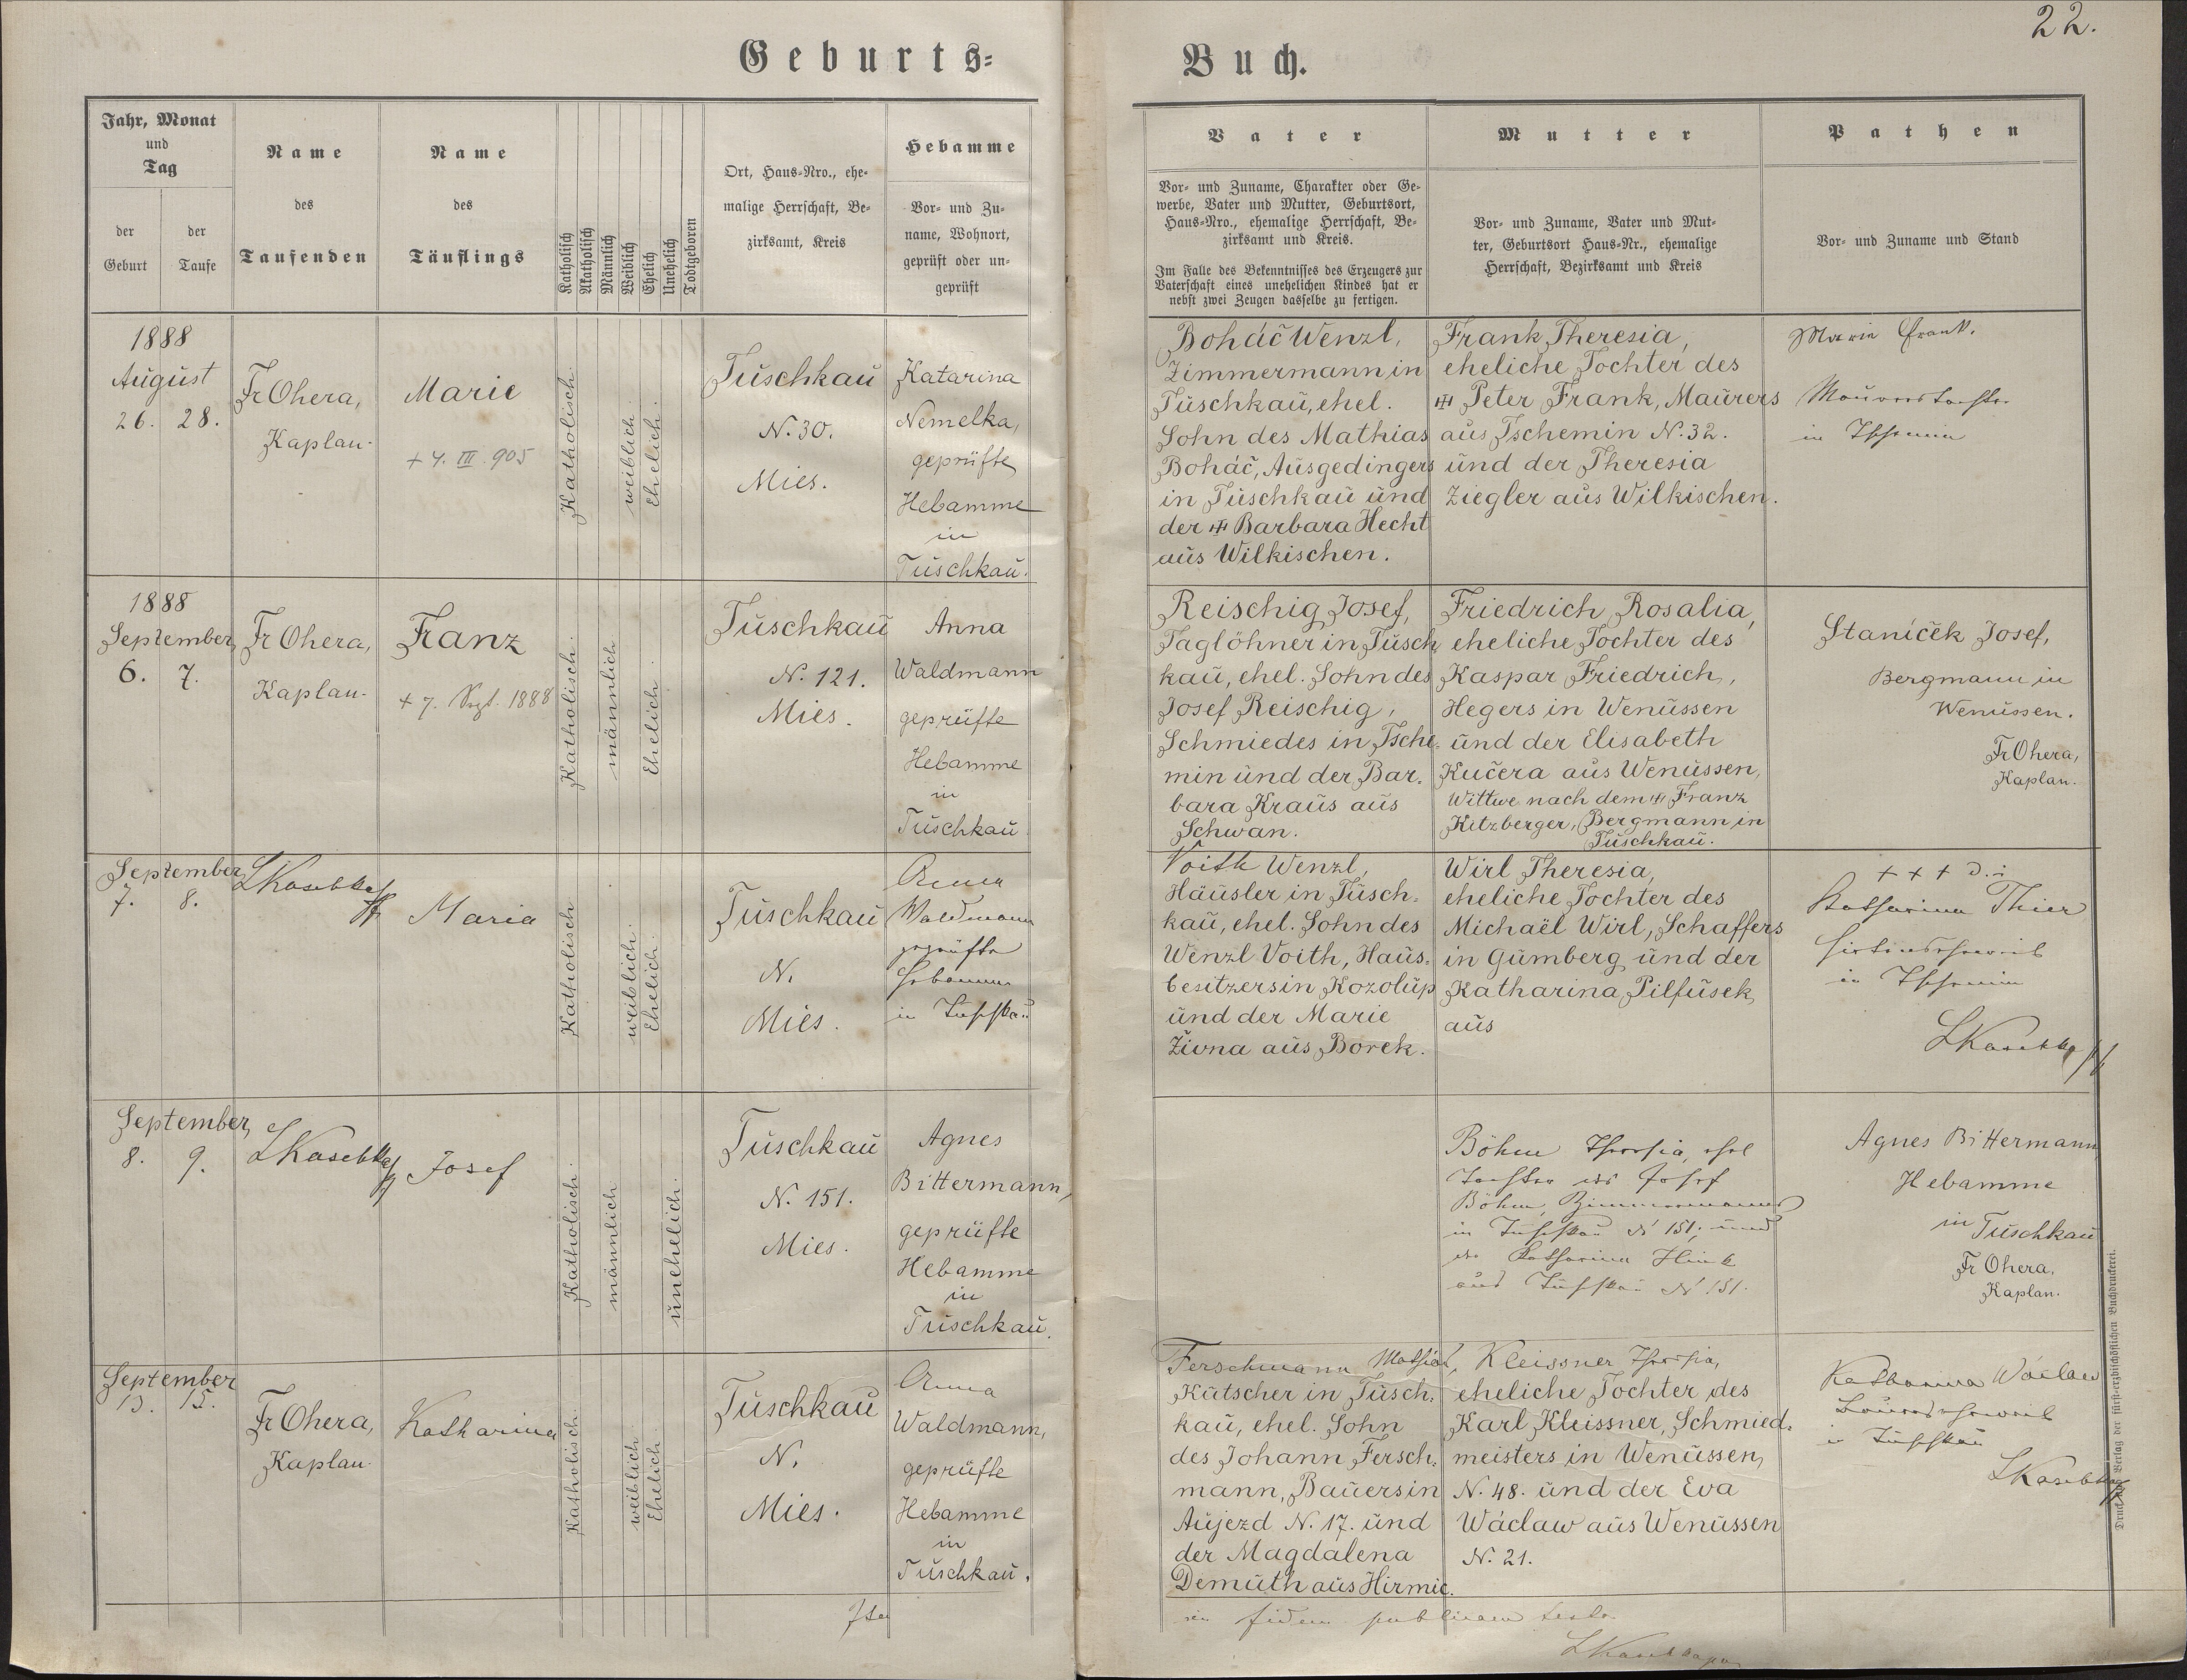 22.
Geburts=
Buch.
Jahr, Monat
und
Tag
der
Geburt
der
Taufe
Name
des
Taufenden
Name
des
Täuflings
Katholisch
Akatholisch
Männlich
Weiblich
Ehelich
Unehelich
Todtgeboren
Ort, Haus=Nro., ehe=
malige Herrschaft, Be=
zirksamt, Kreis
Hebamme
Vor= und Zu=
name, Wohnort,
geprüft oder un=
geprüft
Vater
Vor= und Zuname, Charakter oder Ge=
werbe, Vater und Mutter, Geburtsort,
Haus=Nro., ehemalige Herrschaft, Be=
zirksamt und Kreis.
Im Falle des Bekenntnisses des Erzeugers zur
Vaterschaft eines unehelichen Kindes hat er
nebst zwei Zeugen dasselbe zu fertigen.
Mutter
Vor= und Zuname, Vater und Mut=
ter, Geburtsort Haus=Nr., ehemalige
Herrschaft, Bezirksamt und Kreis
Pathen
Vor= und Zuname und Stand
1888
August
26. 28.
Fr Ohera,
Kaplan.
Marie
+ 4. III. 905
Katholisch.
weiblich.
Ehelich.
Tuschkau
N. 30.
Mies.
Katarina
Nemelka,
geprüfte
Hebamme
in
Tuschkau.
Boháč Wenzl,
Zimmermann in
Tuschkau, ehel.
Sohn des Mathias
Boháč, Ausgedingers
in Tuschkau und
der ✝ Barbara Hecht
aus Wilkischen.
Frank Theresia,
eheliche Tochter des
✝ Peter Frank, Maurers
aus Tschemin N. 32.
und der Theresia
Ziegler aus Wilkischen.
Marie Frank.
Maurerstochter
in Tschemin
1888
September
6. 7.
Fr Ohera,
Kaplan.
Franz
+ 7. Sept. 1888
Katholisch.
männlich
Ehelich.
Tuschkau
N. 121.
Mies.
Anna
Waldmann
geprüfte
Hebamme
in
Tuschkau.
Reischig Josef,
Taglöhner in Tusch
kau, ehel. Sohn des
Josef Reischig,
Schmiedes in Tsche.
min und der Bar.
bara Kraus aus
Schwan.
Friedrich Rosalia,
eheliche Tochter des
Kaspar Friedrich,
Hegers in Wenussen
und der Elisabeth
Kučera aus Wenussen,
Wittwe nach dem ✝ Franz
Kitzberger, Bergmann in
Tuschkau.
Staníček Josef,
Bergmann in
Wenussen.
Fr Ohera,
Kaplan.
September
7. 8.
Maria
Katholisch
weiblich.
Ehelich.
Tuschkau
N.
Mies.
Anna
Waldmann
geprüfte
Hebamme
in Tuschkau
Voith Wenzl,
Häusler in Tusch.
kau, ehel. Sohn des
Wenzl Voith, Haus.
besitzers in Kozolup
und der Marie
Živna aus Borek.
Wirl Theresia,
eheliche Tochter des
Michaël Wirl, Schaffers
in Gumberg und der
Katharina Pilfusek
aus
+ + + d. i.
Katharina Thier
Hirtenseheweib
in Tschemin
September
8. 9.
Josef
Katholisch.
männlich
unehelich.
Tuschkau
N. 151.
Mies.
Agnes
Bittermann,
geprüfte
Hebamme
in
Tuschkau.
Böhm Theresia, ehel
Tochter des Josef
Böhm, Zimmermannes
in Tuschkau N 151; und
der Katharina Hink
aus Tuschkau N 151.
Agnes Bittermann
Hebamme
in Tuschkau
Fr Ohera,
Kaplan.
September
13. 15.
Fr Ohera,
Kaplan.
Katharina
Katholisch.
weiblich.
Ehelich.
Tuschkau
N.
Mies.
Anna
Waldmann,
geprüfte
Hebamme
in
Tuschkau.
Ferschmann Mathias,
Kutscher in Tusch.
kau, ehel. Sohn
des Johann Fersch.
mann, Bauers in
Aujezd N. 17. und
der Magdalena
Demuth aus Hirmic.
Kleissner Theresia,
eheliche Tochter des
Karl Kleissner, Schmied.
meisters in Wenussen,
N. 48. und der Eva
Wáclaw aus Wenussen
N. 21.
Katharina Wáclaw
Bauerseheweib
in Tuschkau
Ita
in fidem publicam testor
Druck und Verlag der fürst=erzbischöflichen Buchdruckerei.